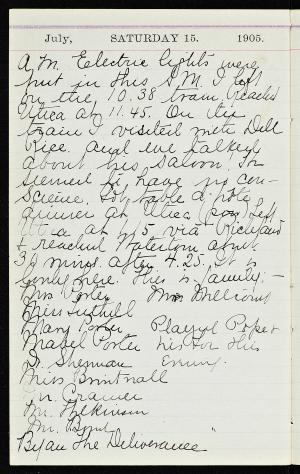 July, SATURDAY 15. 1905.
A.M. Electric lights were
put in this A.M. I left
on the 10.38 train, reached
Utica at 11.45. On the
train I visited with Dell
Rice. and we talked
about his saloon! He
seemed to have no con-
science. Got table d'hôte
dinner at Utica (poor) Left
Utica at 1.15 via Richland
& reached Watertown about
30 mins after 4.25. It is
lovely here. The family:-
Mrs. Porter Mrs. Millicent
Miss Tuthill
Mary Porter Played Poker
Mabel Porter
Dr. Sherman Evening.
Miss Brintnall
Mr. Cramer
Mr. Wilkinson
Mr. Bond
Began The Deliverance